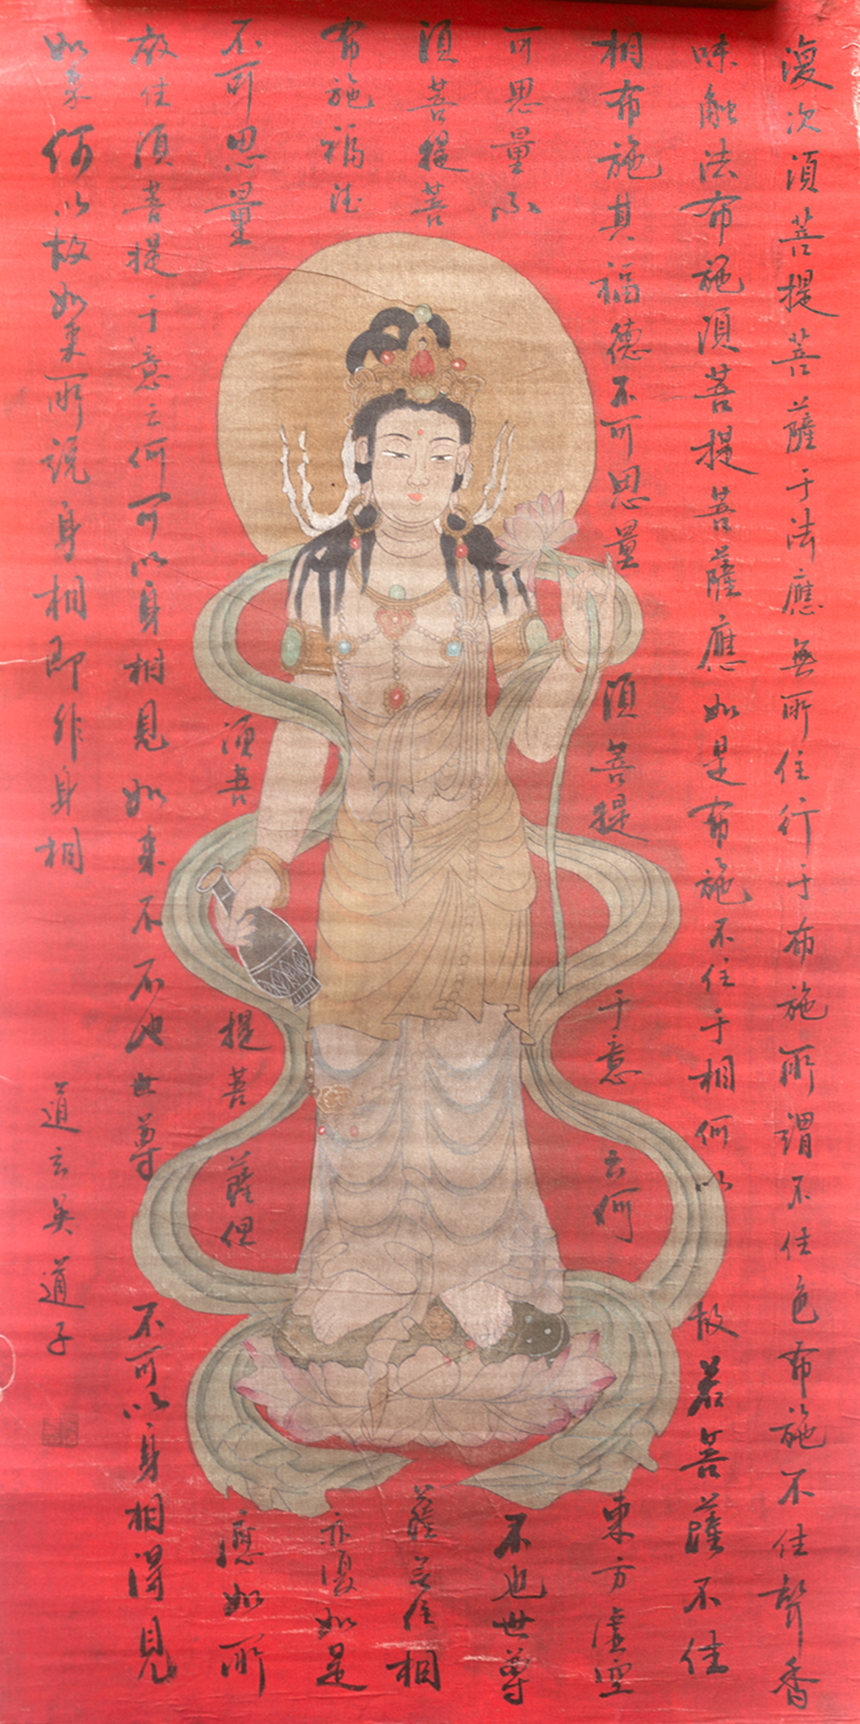 復次須菩提菩薩于法應無所住行于布施所謂不住色布施不住聲香
味觸法布施須菩提菩薩應如是布施不住于相何以故若菩薩不住
相布施其福德不可思量須菩提于意云何東方虛空
可思量不不也世尊
須菩提菩薩無住相
布施福德亦復如是
不可思量須吾提菩薩但應如所
教住須菩提于意云何可以身相見如來不不也世尊不可以身相得見
如來何以故如來所說身相即非身相
道玄吳道子